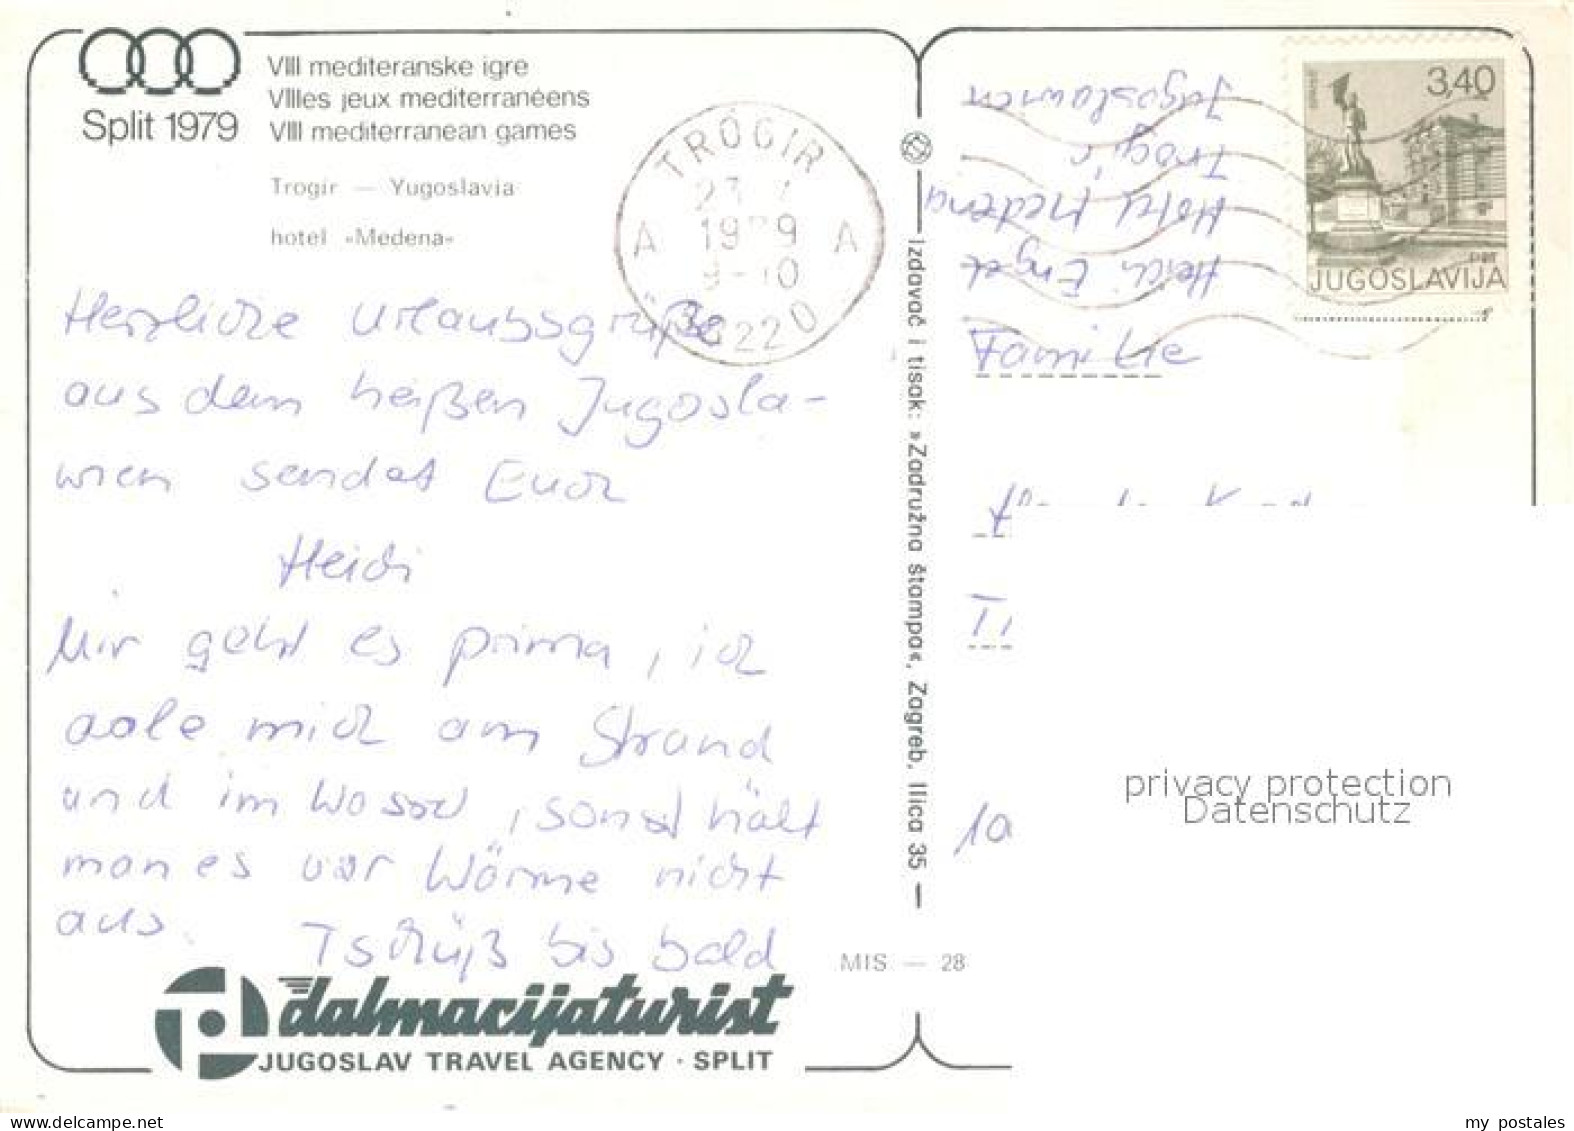 VIII mediteranske igre
VIIIes jeux mediterranéens
VIII mediterranean games
Split 1979
Trogir — Yugoslavia
hotel »Medena«
TROGIR
23 7
1979
9-10
A A
Herzliche Urlaubsgrüße
aus dem heißen Jugosla-
wien sendet Euch
Heidi
Mir geht es prima, ich
aale mich am Strand
und im Wasser, sonst hält
man es vor Wärme nicht
aus. Tschüß bis bald
dalmacijaturist
JUGOSLAV TRAVEL AGENCY · SPLIT
Izdavač i tisak: »Zadružna štampa«, Zagreb, Ilica 35
MIS — 28
3,40
PTT
JUGOSLAVIJA
Heidi Engel
Hotel Medena
Trogir
Jugoslawien
Familie
privacy protection
Datenschutz
www.delcampe.net
my_postales